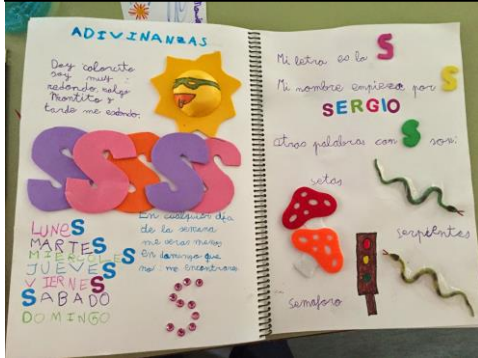 ADIVINANZAS
Doy calorcito
soy muy
redondo, salgo
prontito y
tarde me escondo.
SSSSS
LUNES
MARTES
MIERCOLES
JUEVES
VIERNES
SABADO
DOMINGO
En cualquier día
de la semana
me verás menos
en domingo que
no me encontraras
S
Mi letra es la S
Mi nombre empieza por S
SERGIO
Otras palabras con S son:
setas
serpientes
semáforo